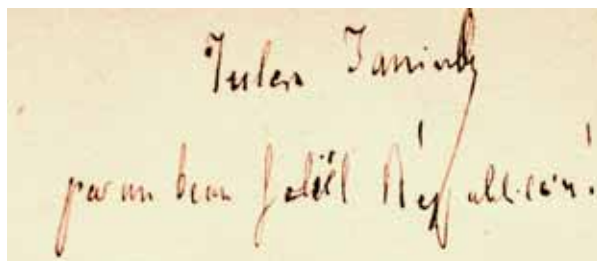 Jules Janin
par un beau soleil Républicain!